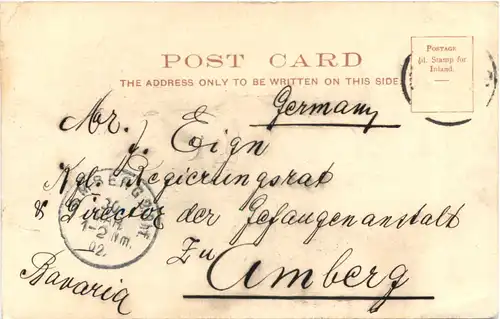 POST CARD
THE ADDRESS ONLY TO BE WRITTEN ON THIS SIDE.
POSTAGE
½d. Stamp for
Inland.
Germany
Mr. J. Eign
Kgl. Regierungsrat
& Director der Gefangenanstalt
zu
Amberg
Bavaria
1-2 Nm.
02.